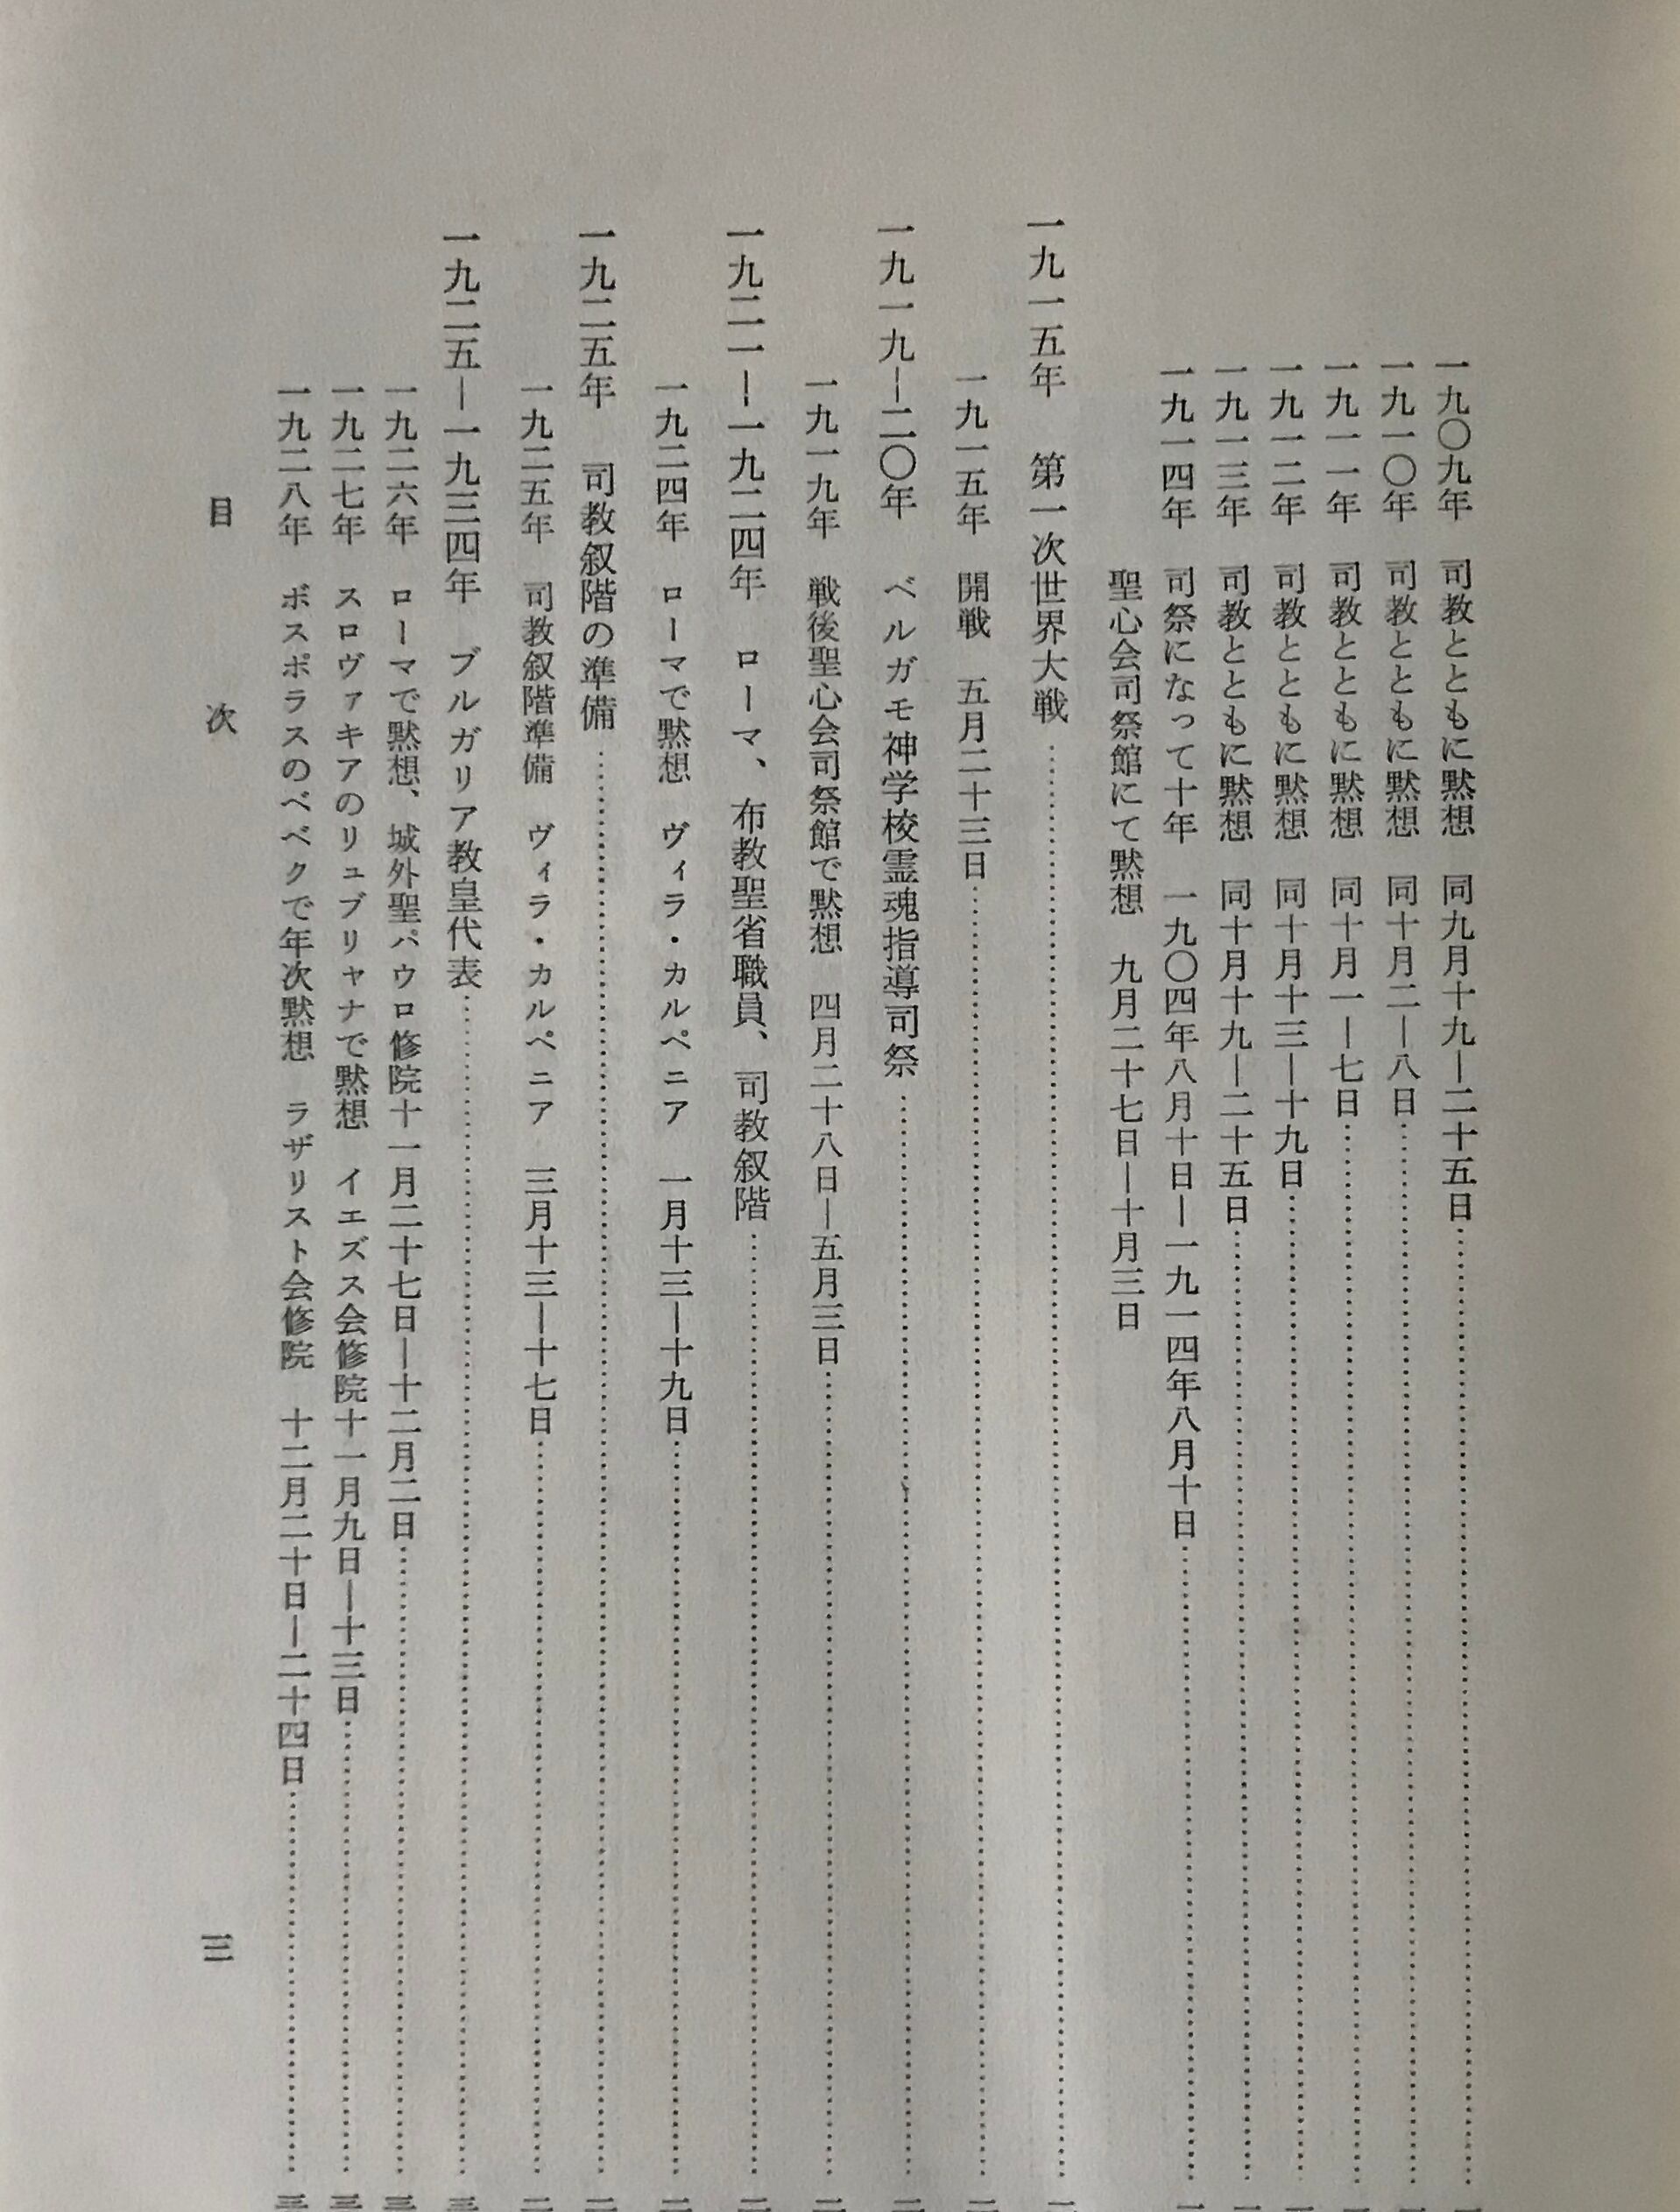 一九〇九年　司教とともに黙想　同九月十九―二十五日
一九一〇年　司教とともに黙想　同十月二―八日
一九一一年　司教とともに黙想　同十月一―七日
一九一二年　司教とともに黙想　同十月十三―十九日
一九一三年　司教とともに黙想　同十月十九―二十五日
一九一四年　司祭になって十年　一九〇四年八月十日―一九一四年八月十日
聖心会司祭館にて黙想　九月二十七日―十月三日
一九一五年　第一次世界大戦
一九一五年　開戦　五月二十三日
一九一九―二〇年　ベルガモ神学校霊魂指導司祭
一九一九年　戦後聖心会司祭館で黙想　四月二十八日―五月三日
一九二一―一九二四年　ローマ、布教聖省職員、司教叙階
一九二四年　ローマで黙想　ヴィラ・カルペニア　一月十三―十九日
一九二五年　司教叙階の準備
一九二五年　司教叙階準備　ヴィラ・カルペニア　三月十三―十七日
一九二五―一九三四年　ブルガリア教皇代表
一九二六年　ローマで黙想、城外聖パウロ修院十一月二十七日―十二月二日
一九二七年　スロヴァキアのリュブリャナで黙想　イエズス会修院十一月九日―十三日
一九二八年　ボスポラスのベベクで年次黙想　ラザリスト会修院　十二月二十日―二十四日
目　次
三